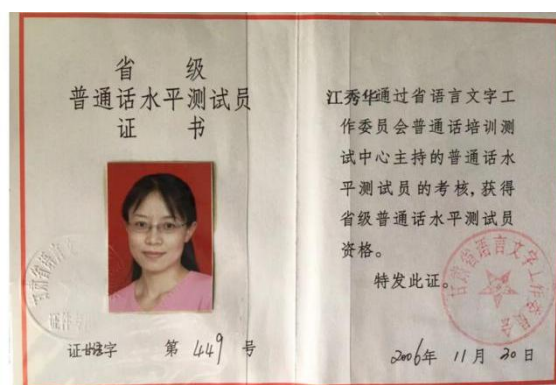 省 级
普通话水平测试员
证 书
证甘语字 第 449 号
江秀华通过省语言文字工
作委员会普通话培训测
试中心主持的普通话水
平测试员的考核,获得
省级普通话水平测试员
资格。
特发此证。
甘肃省语言文字工作委员会
2006年 11月 20日